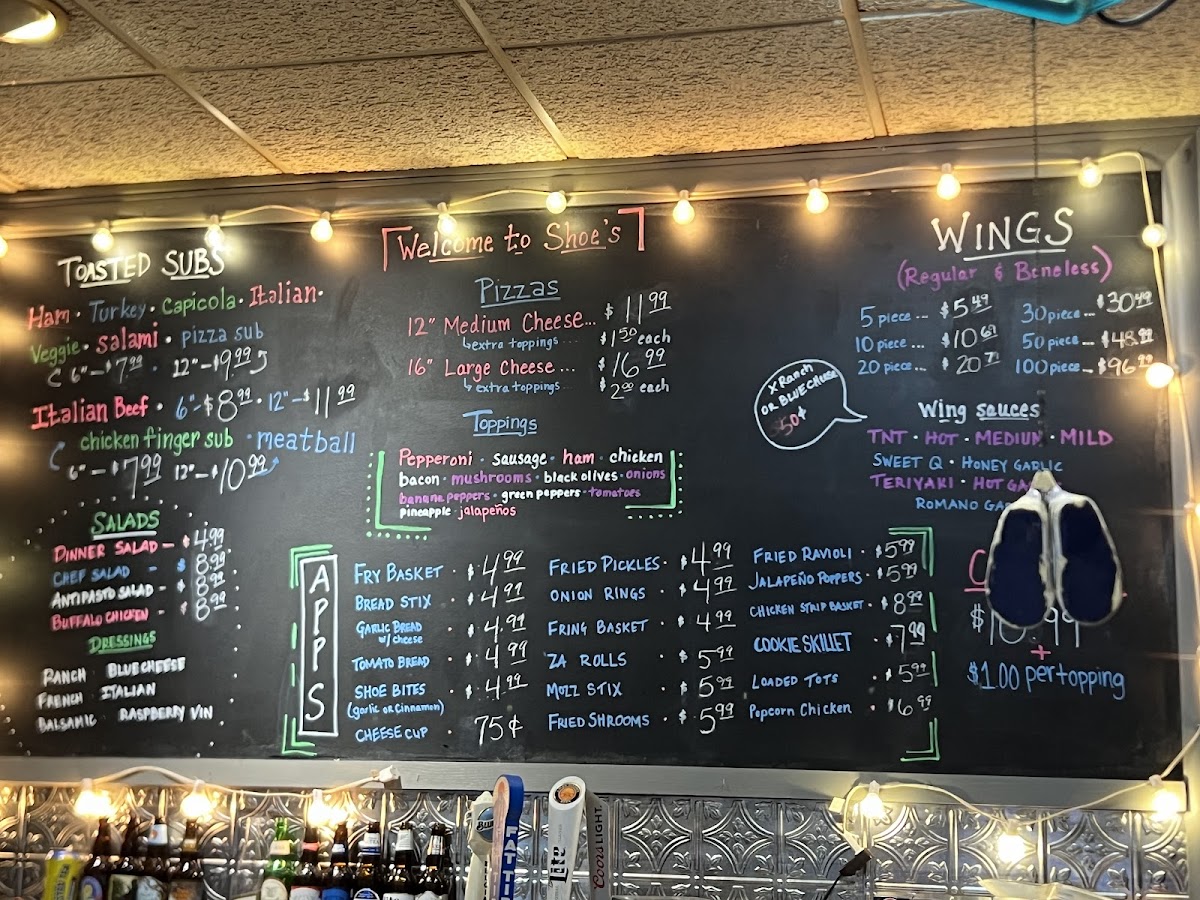 Welcome to Shoe's
TOASTED SUBS
Ham · Turkey · Capicola · Italian ·
Veggie · Salami · pizza sub
6"-$7.99 12"-$9.99
Italian Beef · 6"-$8.99 · 12"-$11.99
chicken finger sub · meatball
6"-$7.99 12"-$10.99
SALADS
DINNER SALAD - $4.99
CHEF SALAD - $8.99
ANTIPASTO SALAD - $8.99
BUFFALO CHICKEN - $8.99
DRESSINGS
RANCH BLUE CHEESE
FRENCH ITALIAN
BALSAMIC RASPBERRY VIN
Pizzas
12" Medium Cheese... $11.99
extra toppings... $1.50 each
16" Large Cheese... $16.99
extra toppings... $2.00 each
Toppings
Pepperoni · sausage · ham · chicken
bacon · mushrooms · black olives · onions
banana peppers · green peppers · tomatoes
pineapple · jalapeños
APPS
FRY BASKET · $4.99
BREAD STIX · $4.99
GARLIC BREAD · $4.99
w/cheese
TOMATO BREAD · $4.99
SHOE BITES · $4.99
(garlic or cinnamon)
CHEESE CUP · 75¢
FRIED PICKLES · $4.99
ONION RINGS · $4.99
FRING BASKET · $4.99
ZA ROLLS · $5.99
MOZZ STIX · $5.99
FRIED SHROOMS · $5.99
FRIED RAVIOLI · $5.99
JALAPEÑO POPPERS · $5.99
CHICKEN STRIP BASKET · $8.99
COOKIE SKILLET · $7.99
LOADED TOTS · $5.99
Popcorn Chicken · $6.99
WINGS
(Regular & Boneless)
5 piece ... $5.49
10 piece ...
20 piece ...
30 piece ... $30.49
50 piece ... $48.99
100 piece ...
X Ranch
OR BLUE CHEESE
50¢
Wing sauces
TNT · HOT · MEDIUM · MILD
SWEET Q · HONEY GARLIC
TERIYAKI · HOT
ROMANO
+
$1.00 per topping
FAT TI
Lite
Coors LIGHT